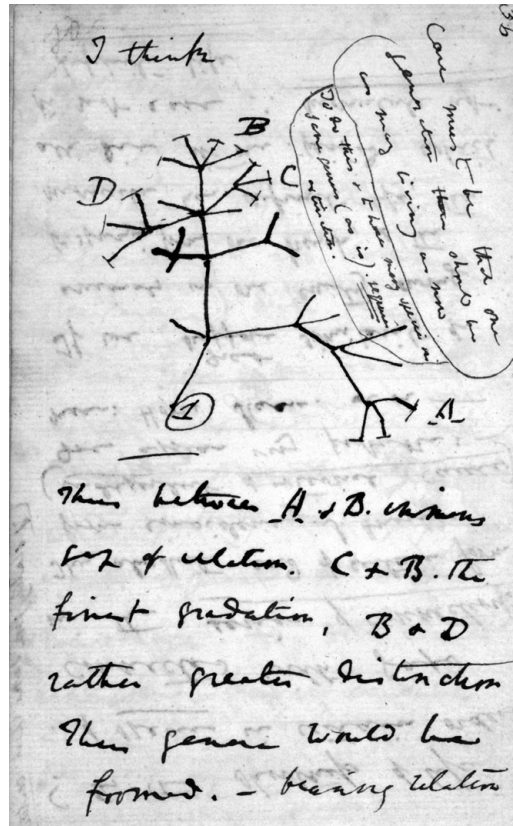 I think
B
C
D
A
1
36
Case must be that one
generation then should be
as many living as now
To do this & to have many species in
same genus (as is). requires
extinction.
Thus between A & B. immens
gap of relation. C & B. the
finest gradation, B & D
rather greater distinction
Thus genera would be
formed. — bearing relation